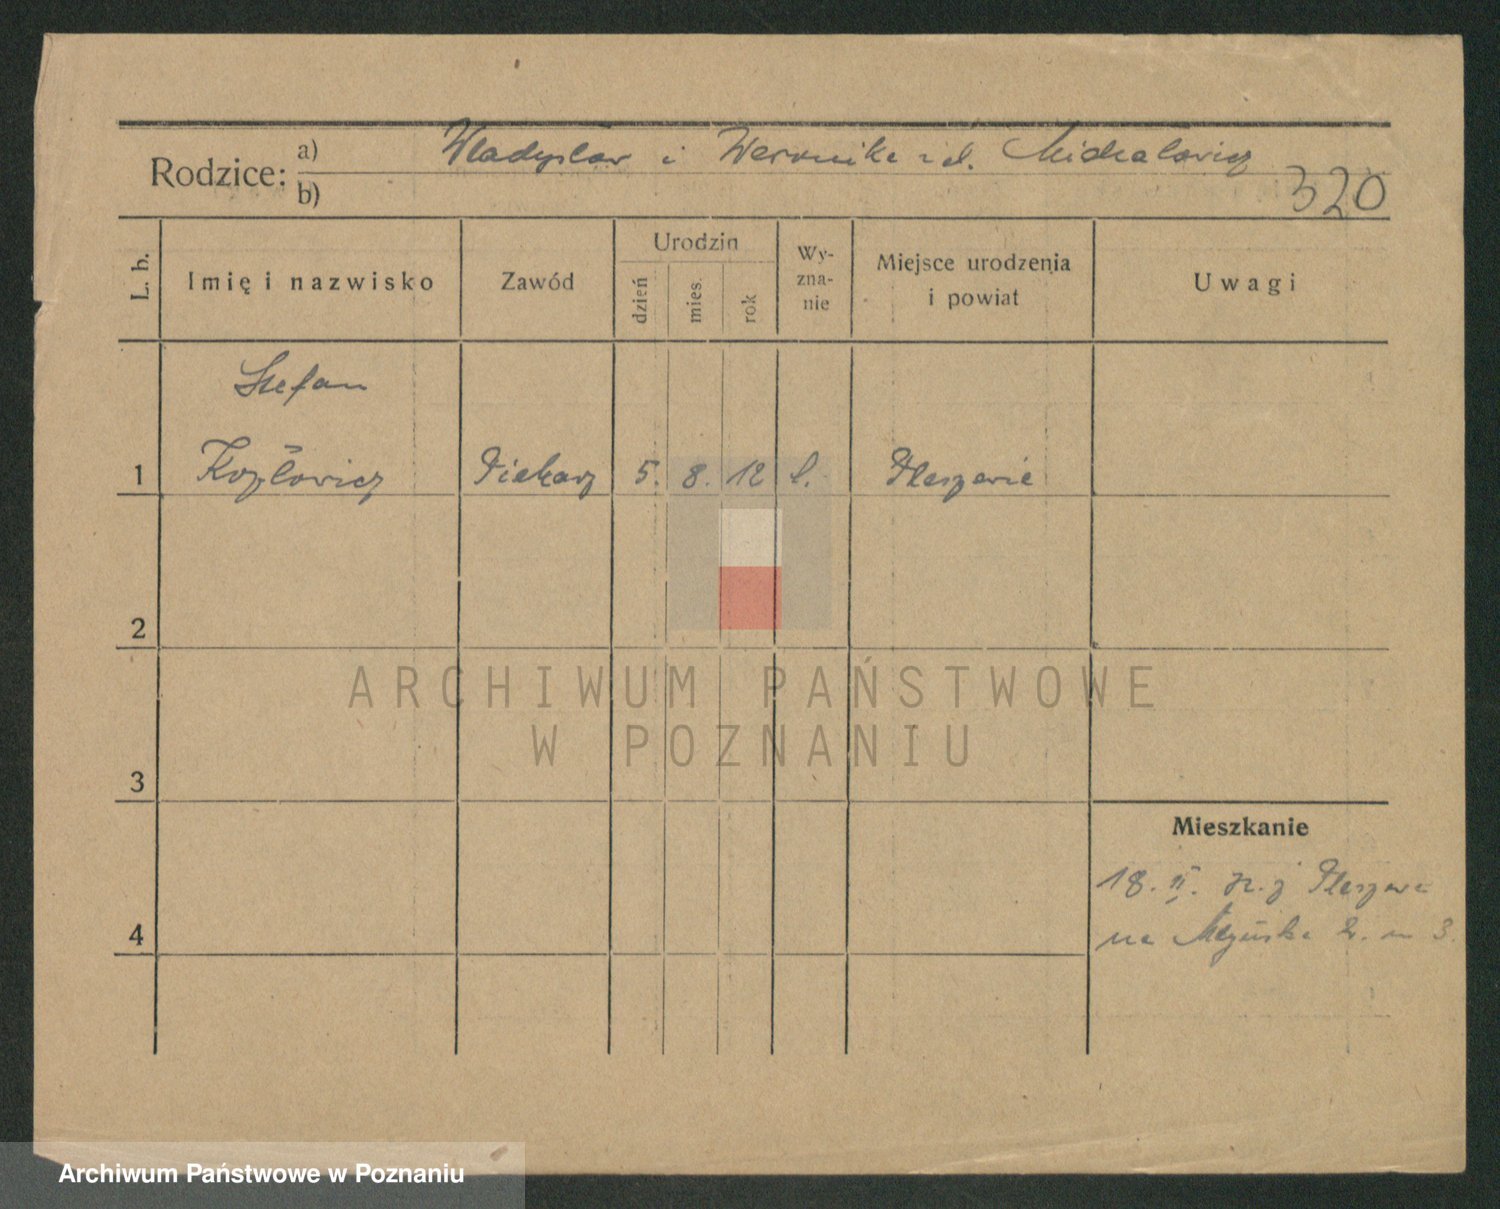 Rodzice:
a) Władysław i Weronika z d. Michałowicz
b)
320
L. b.
Imię i nazwisko
Zawód
Urodzin
dzień
mies.
rok
Wy-
zna-
nie
Miejsce urodzenia
i powiat
Uwagi
Stefan
1 Kozłowicz Piekarz 5. 8. 12 Pleszewie
2
3
4
Mieszkanie
18. II. Pleszewa
na 2. m 3.
ARCHIWUM PAŃSTWOWE
W POZNANIU
Archiwum Państwowe w Poznaniu